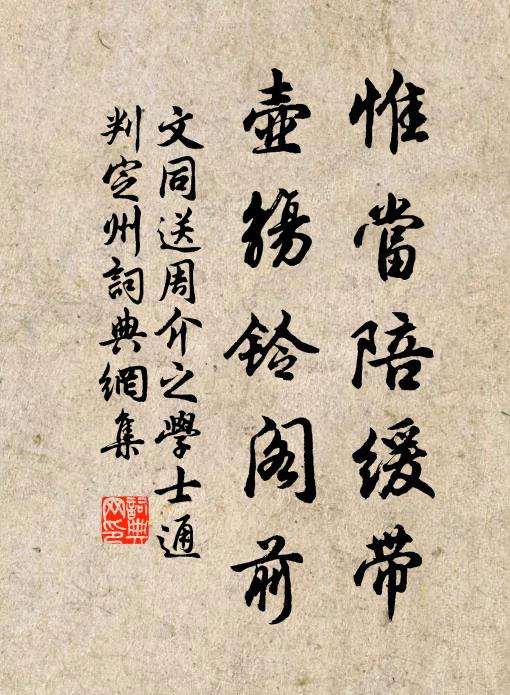 惟當陪緩帶
壺觴鈴閣前
文同送周介之學士通
判定州詞典網集
詞典網印